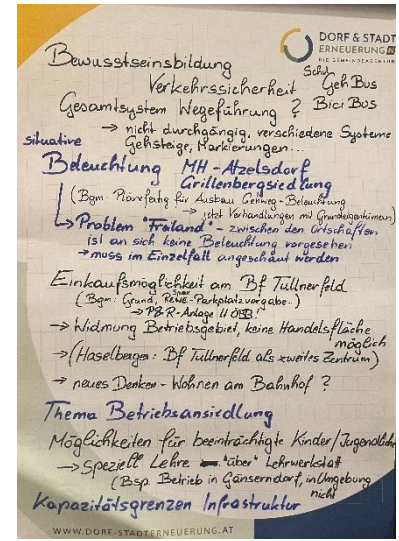 DORF & STADT
ERNEUERUNG
DIE GEMEINDEAGENTUR
Bewusstseinsbildung
Verkehrssicherheit Schul GehBus
Gesamtsystem Wegeführung ? Bici Bus
→ nicht durchgängig, verschiedene Systeme
Gehsteige, Markierungen...
situative
Beleuchtung MH-Atzelsdorf
Grillenbergsiedlung
(Bgm. Pläne fertig für Ausbau Gehweg-Beleuchtung
→ jetzt Verhandlungen mit Grundeigentümern)
→ Problem "Freiland" - zwischen den Ortschaften
ist an sich keine Beleuchtung vorgesehen
→ muss im Einzelfall angeschaut werden
Einkaufsmöglichkeit am Bf Tullnerfeld
(Bgm: Grund, Spar REWE-Parkplatzvorgabe..)
→ P&R-Anlage ÖBB!
→ Widmung Betriebsgebiet, keine Handelsfläche
möglich
→ (Haselberger: Bf Tullnerfeld als zweites Zentrum)
→ neues Denken - Wohnen am Bahnhof ?
Thema Betriebsansiedlung
Möglichkeiten für beeinträchtigte Kinder/Jugendliche
→ Speziell Lehre "über" Lehrwerkstat
(Bsp. Betrieb in Gänserndorf, in Umgebung
nicht
Kapazitätsgrenzen Infrastruktur
WWW.DORF-STADTERNEUERUNG.AT